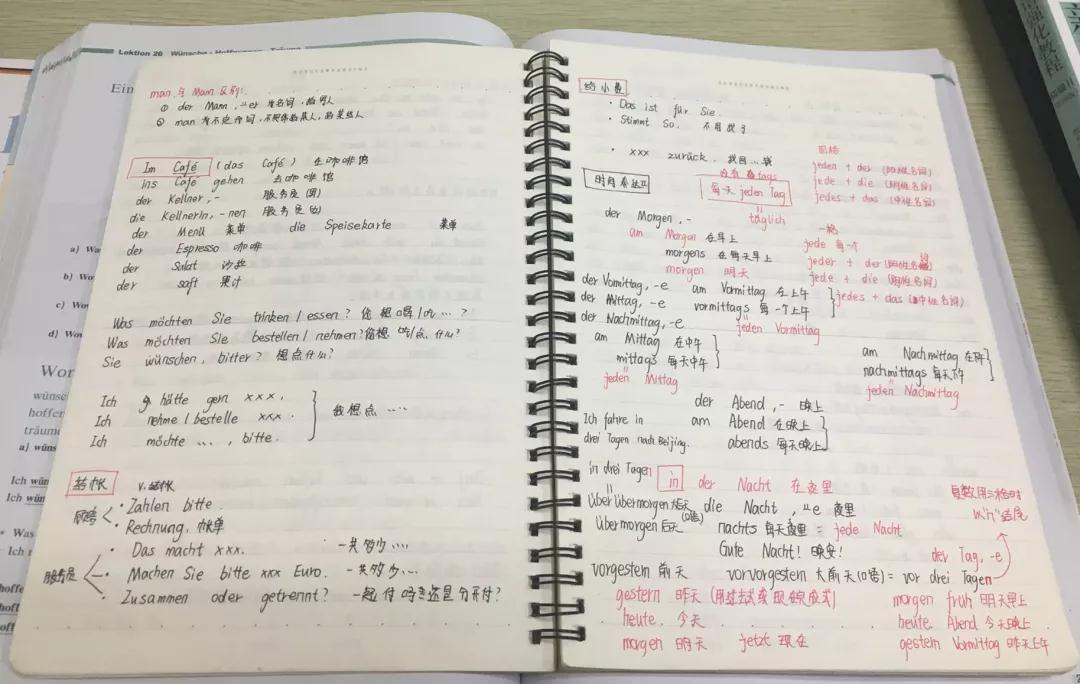 Lektion 26 Wünsche · Hoffnungen · Träume
Ein
a) Wa
b) Wo
c) Wo
d) Wo
Wor
wünsc
hoffer
träume
a) wüns
Ich wün
Ich wün
Was
Ich h
hoffe
hoff
hoff
man 与 Mann 区别:
① der Mann, ⸚er 为名词, 指男人
② man 为不定代词, 不具体的某人, 的某些人
Im Café (das Café) 在咖啡馆
ins Café gehen 去咖啡馆
der Kellner, - 服务员(男)
die Kellnerin, -nen 服务员(女)
der Menü 菜单 die Speisekarte 菜单
der Espresso 咖啡
der Salat 沙拉
der saft 果汁
Was möchten Sie trinken / essen? 你想喝/吃…?
Was möchten Sie bestellen / nehmen? 你想吃/点什么?
Sie wünschen, bitter? 想点什么?
Ich hätte gern xxx.
Ich nehme / bestelle xxx. 我想点....
Ich möchte ..., bitte.
结帐 v. 结帐
顾客
· Zahlen bitte.
· Rechnung. 帐单
服务员
· Das macht xxx. 一共多少....
· Machen Sie bitte xxx Euro. 一共多少...
· Zusammen oder getrennt? 一起付吗还是分开付?
给小费
· Das ist für Sie.
· Stimmt So. 不用找了
· xxx zurück. 找回...钱
四格
jeden + der (阳性名词)
jede + die (阴性名词)
jedes + das (中性名词)
时间表达
tags
每天 jeden Tag
täglich
der Morgen, -
am Morgen 在早上
morgens 在每天早上
morgen 明天
一格
jede 每一个
jeder + der
jede + die (阴性名词)
jedes + das (中性名词)
der Vormittag, -e am Vormittag 在上午
der Mittag, -e vormittags 每一个上午
der Nachmittag, -e jeden Vormittag
am Mittag 在中午
mittags 每天中午
jeden Mittag
am Nachmittag 在下午
nachmittags 每天下午
jeden Nachmittag
der Abend, - 晚上
Ich fahre in am Abend 在晚上
drei Tagen nach Beijing. abends 每天晚上
in drei Tagen in der Nacht 在夜里
Über übermorgen 大后天 (口语) die Nacht, ⸚e 夜里
Übermorgen 后天 nachts 每天夜里 = jede Nacht
Gute Nacht! 晚安!
复数用三格时
以"n"结尾
der Tag, -e
vorgestern 前天 vorvorgestern 大前天(口语) = vor drei Tagen
gestern 昨天 (用过去式或现在完成式) morgen früh 明天早上
heute. 今天 heute. Abend 今天晚上
morgen 明天 jetzt 现在 gestern Vormittag 昨天上午
强化教程